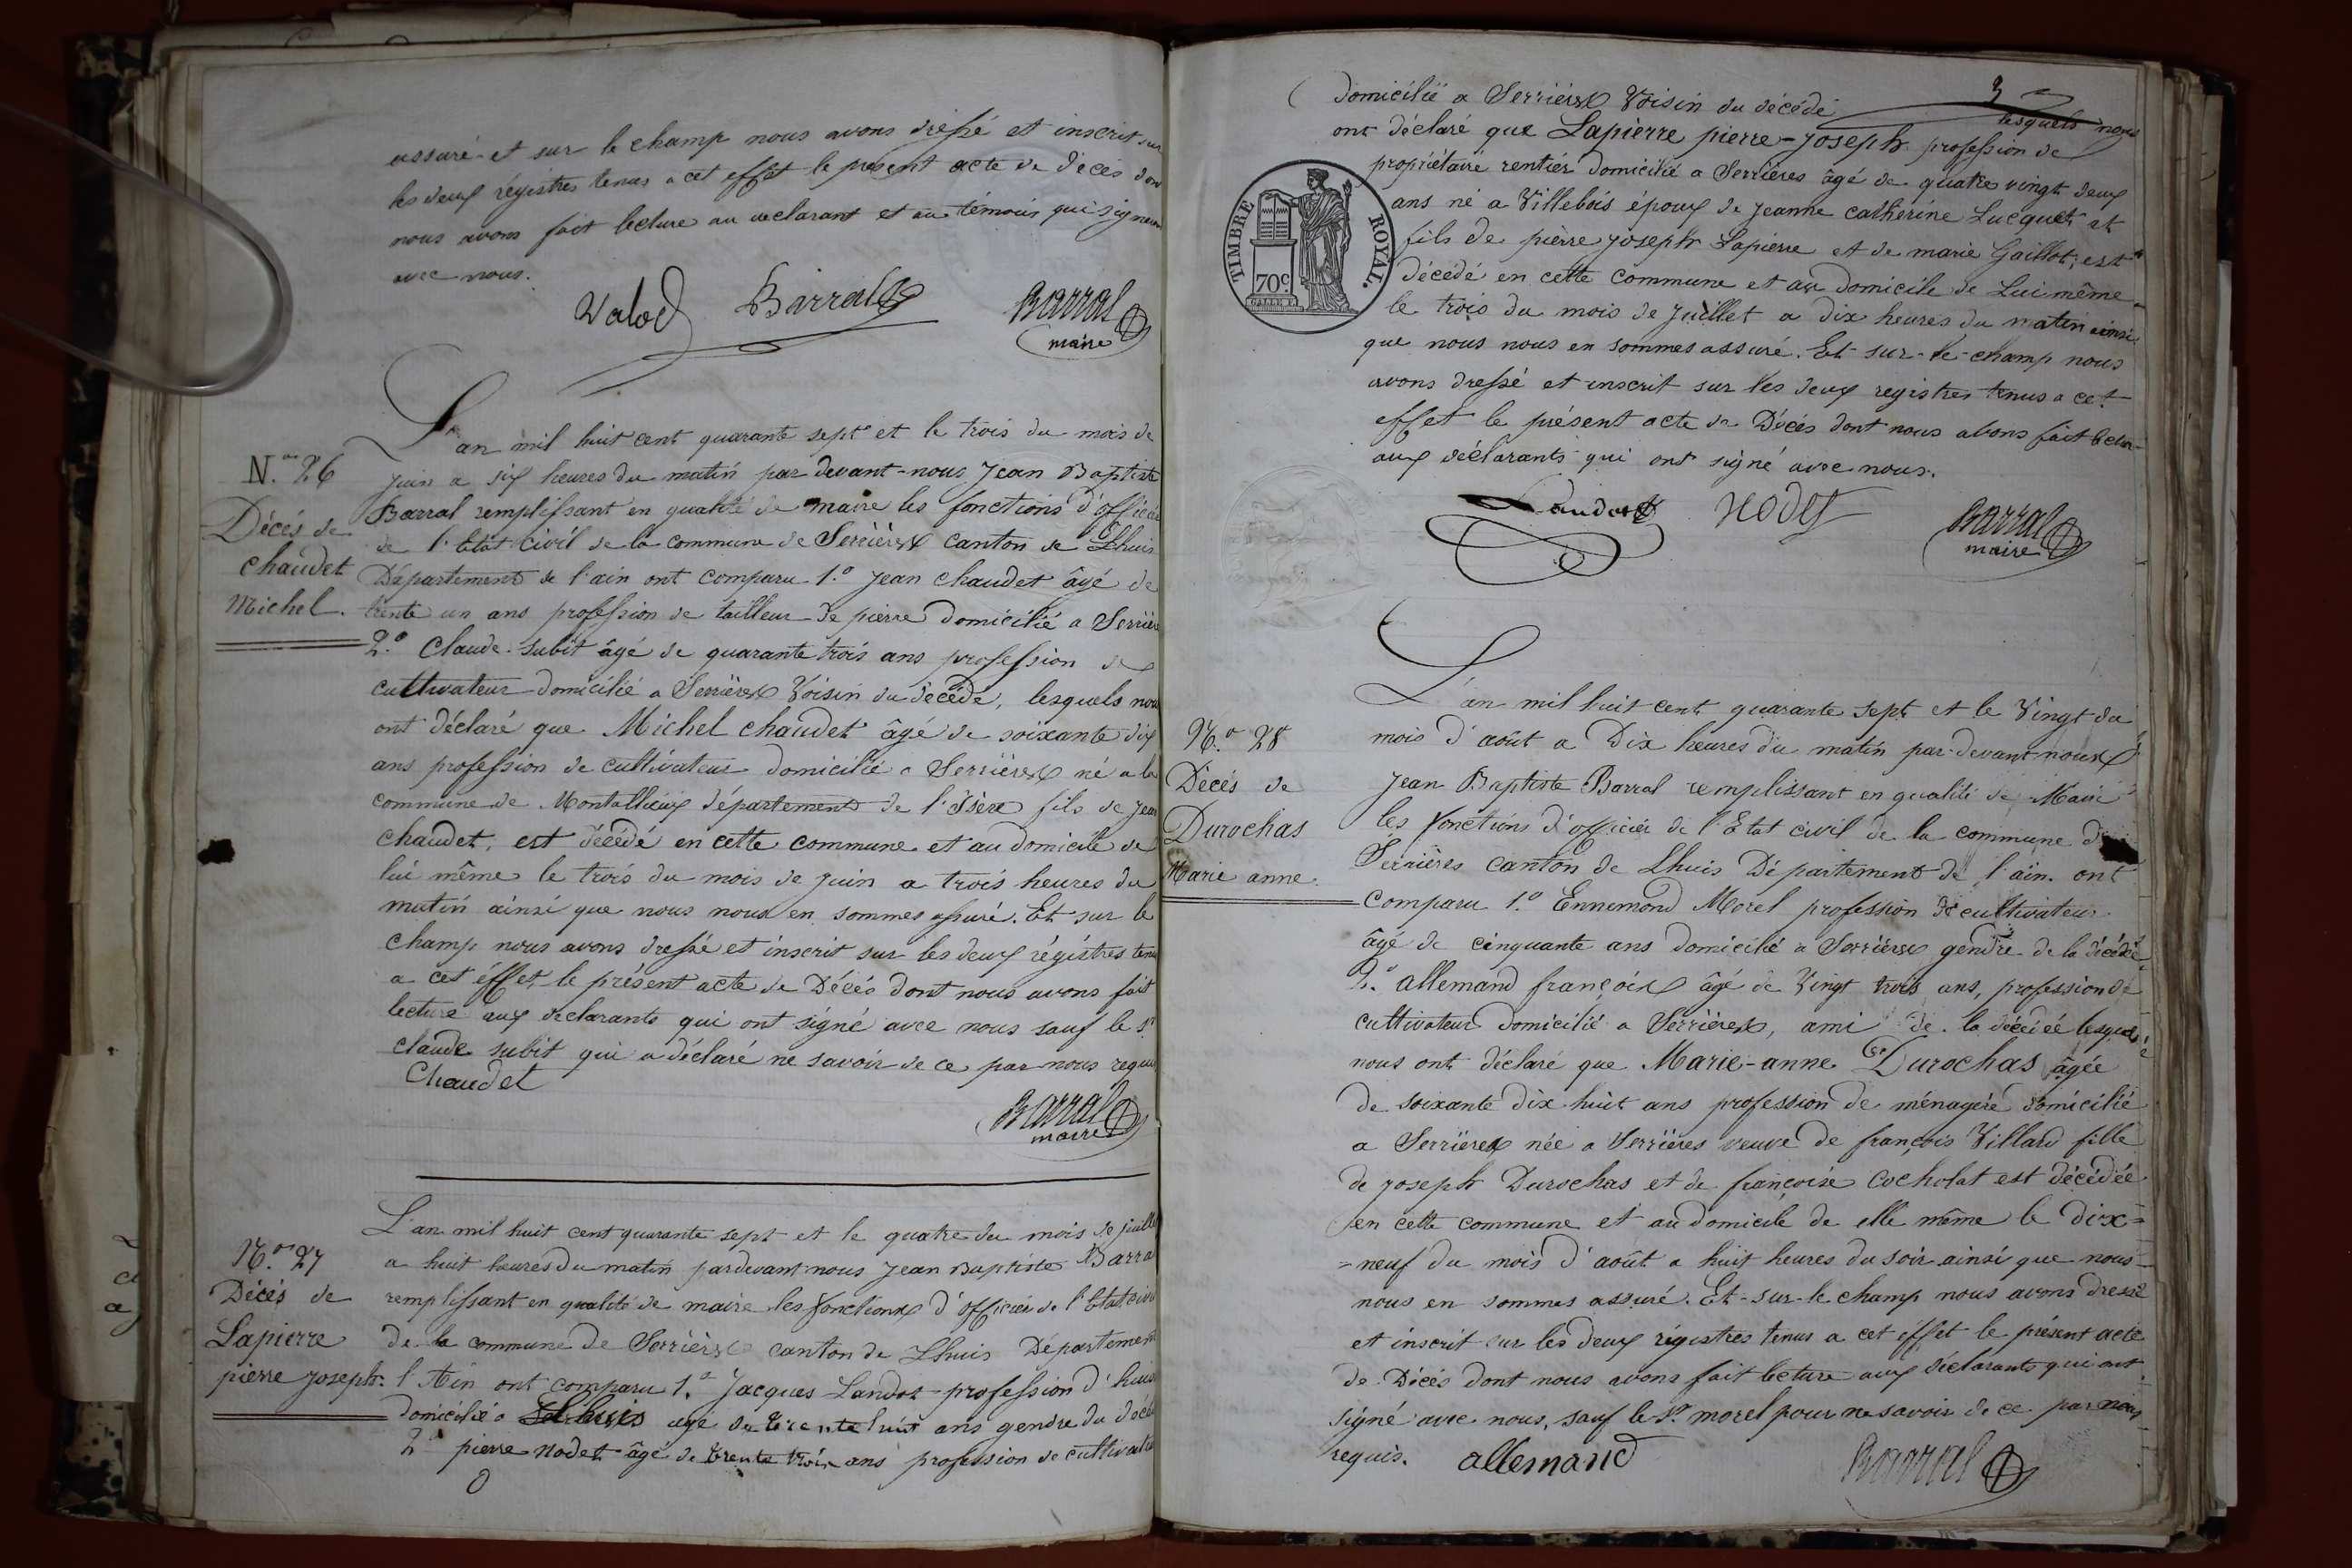 assuré et sur le champ nous avons dressé et inscrit sur
les deux régistres tenus a cet effet le présent acte de décès don
nous avons fait lecture au declarant et au témoin qui signeron
avec nous.
Valod Barral Barral
maire
L'an mil huit cent quarante sept et le trois du mois de
N.° 26
juin a six heures du matin par devant-nous Jean Baptiste
Barral remplissant en qualité de maire les fonctions d'officier
Décés de
de l'Etat civil de la commune de Serrières canton de Lhuis
chaudet
Département de l'ain ont comparu 1.° Jean chaudet âgé de
Michel.
trente un ans profession de tailleur de pierre domicilié a Serrière
2.° Claude subit âgé de quarante trois ans profession de
cultivateur domicilié a Serrières Voisin du décédé, lesquels nous
ont déclaré que Michel chaudet âgé de soixante dix
ans profession de cultivateur domicilié a Serrières né a la
commune de Montallieux département de l'Isère fils de Jean
chaudet, est décédé en cette commune et au domicile de
lui même le trois du mois de juin a trois heures du
matin ainsi que nous nous en sommes assuré. Et sur le
champ nous avons dressé et inscrit sur les deux régistres tenu
a cet éffet, le présent acte de Décés dont nous avons fait
lecture aux déclarants qui ont signé avec nous sauf le s.r
claude subit qui a déclaré ne savoir de ce par nous requis
Chaudet
Barral
maire
L'an mil huit cent quarante sept et le quatre du mois de juille
N.° 27
a huit heures du matin pardevant nous Jean Baptiste Barra
Décés de
remplissant en qualité de maire les fonctions d'officier de l'Etat civil
Lapierre
de la commune de Serrières canton de Lhuis Département
pierre joseph.
l'Ain ont comparu 1.° Jacques Landoz profession d'huis
domicilié a Lhuis agé de trente huit ans gendre du décé
2° pierre Nodet âgé de trente trois ans profession de cultivate
3
domicilié a Serrières Voisin du décédé lesquels nous
ont déclaré que Lapierre pierre-Joseph profession de
propriétaire rentier domicilié a Serrières âgé de quatre vingt deux
ans né a Villebois époux de Jeanne catherine Lucquet et
fils de pierre joseph Lapierre et de marie Gaillot, est
décédé en cette commune et au domicile de Lui même
le trois du mois de Juillet a dix heures du matin ainsi
que nous nous en sommes assuré. Et sur-le-champ nous
avons dressé et inscrit sur les deux registres tenus a cet
effet le présent acte de Décés dont nous avons fait lectur
aux déclarants qui ont signé avec nous.
TIMBRE ROYAL.
70c
Nodet Barral
maire
L'an mil huit cent quarante sept et le Vingt du
N.° 28
mois d'août a Dix heures du matin par-devant-nous
Décés de
Jean Baptiste Barral remplissant en qualité de Maire
Durochas
les fonctions d'officier de l'Etat civil de la commune de
Marie anne.
Serrières canton de Lhuis Département de l'ain. ont
comparu 1.° Ennemond Morel profession de cultivateur
âgé de cinquante ans domicilié a Serrières gendre de la décédée
2.° allemand françois âgé de Vingt trois ans, profession de
cultivateur domicilié a Serrières, ami de la décédée lesquels
nous ont déclaré que Marie-anne Durochas âgée
de soixante dix huit ans profession de ménagère domicilié
a Serrières née a Serrières veuve de françois Villard fille
de joseph Durochas et de françoise Cocholat est décédée
en cette commune et au domicile de elle même le dix=
=neuf du mois d'août a huit heures du soir ainsi que nous
nous en sommes assuré. Et-sur-le champ nous avons dressé
et inscrit sur les deux régistres tenus a cet éffet le présent acte
de Décés dont nous avons fait lecture aux déclarants qui ont
signé avec nous, sauf le S.r morel pour ne savoir de ce par nous
requis. allemand Barral